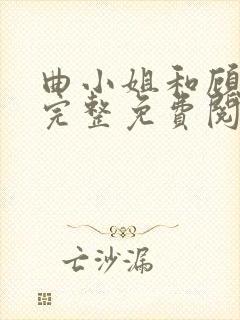 曲小姐和顾
完整免費閱
亡沙漏